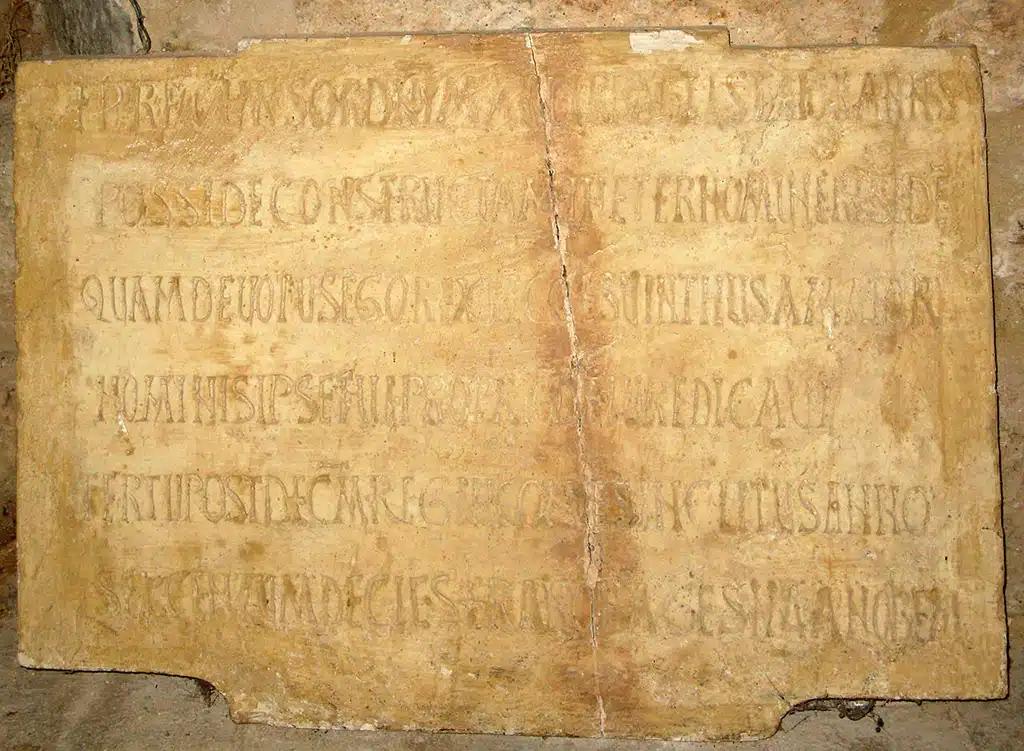 + PRECURSOR DNI MARTIR BABTISTA IOHANNES
POSSIDE CONSTRUCTAM IN ETERNO MUNERE SEDE
QUAM DEVOTUS EGO REX RECCESVINTHUS AMATOR
NOMINIS IPSE TUI PROPRIO DE IURE DICAVI
TERTII POST DECM REGNI COMES INCLITUS ANNO
SEXCENTUM DECIES ERA NONAGESIMA NOBEM